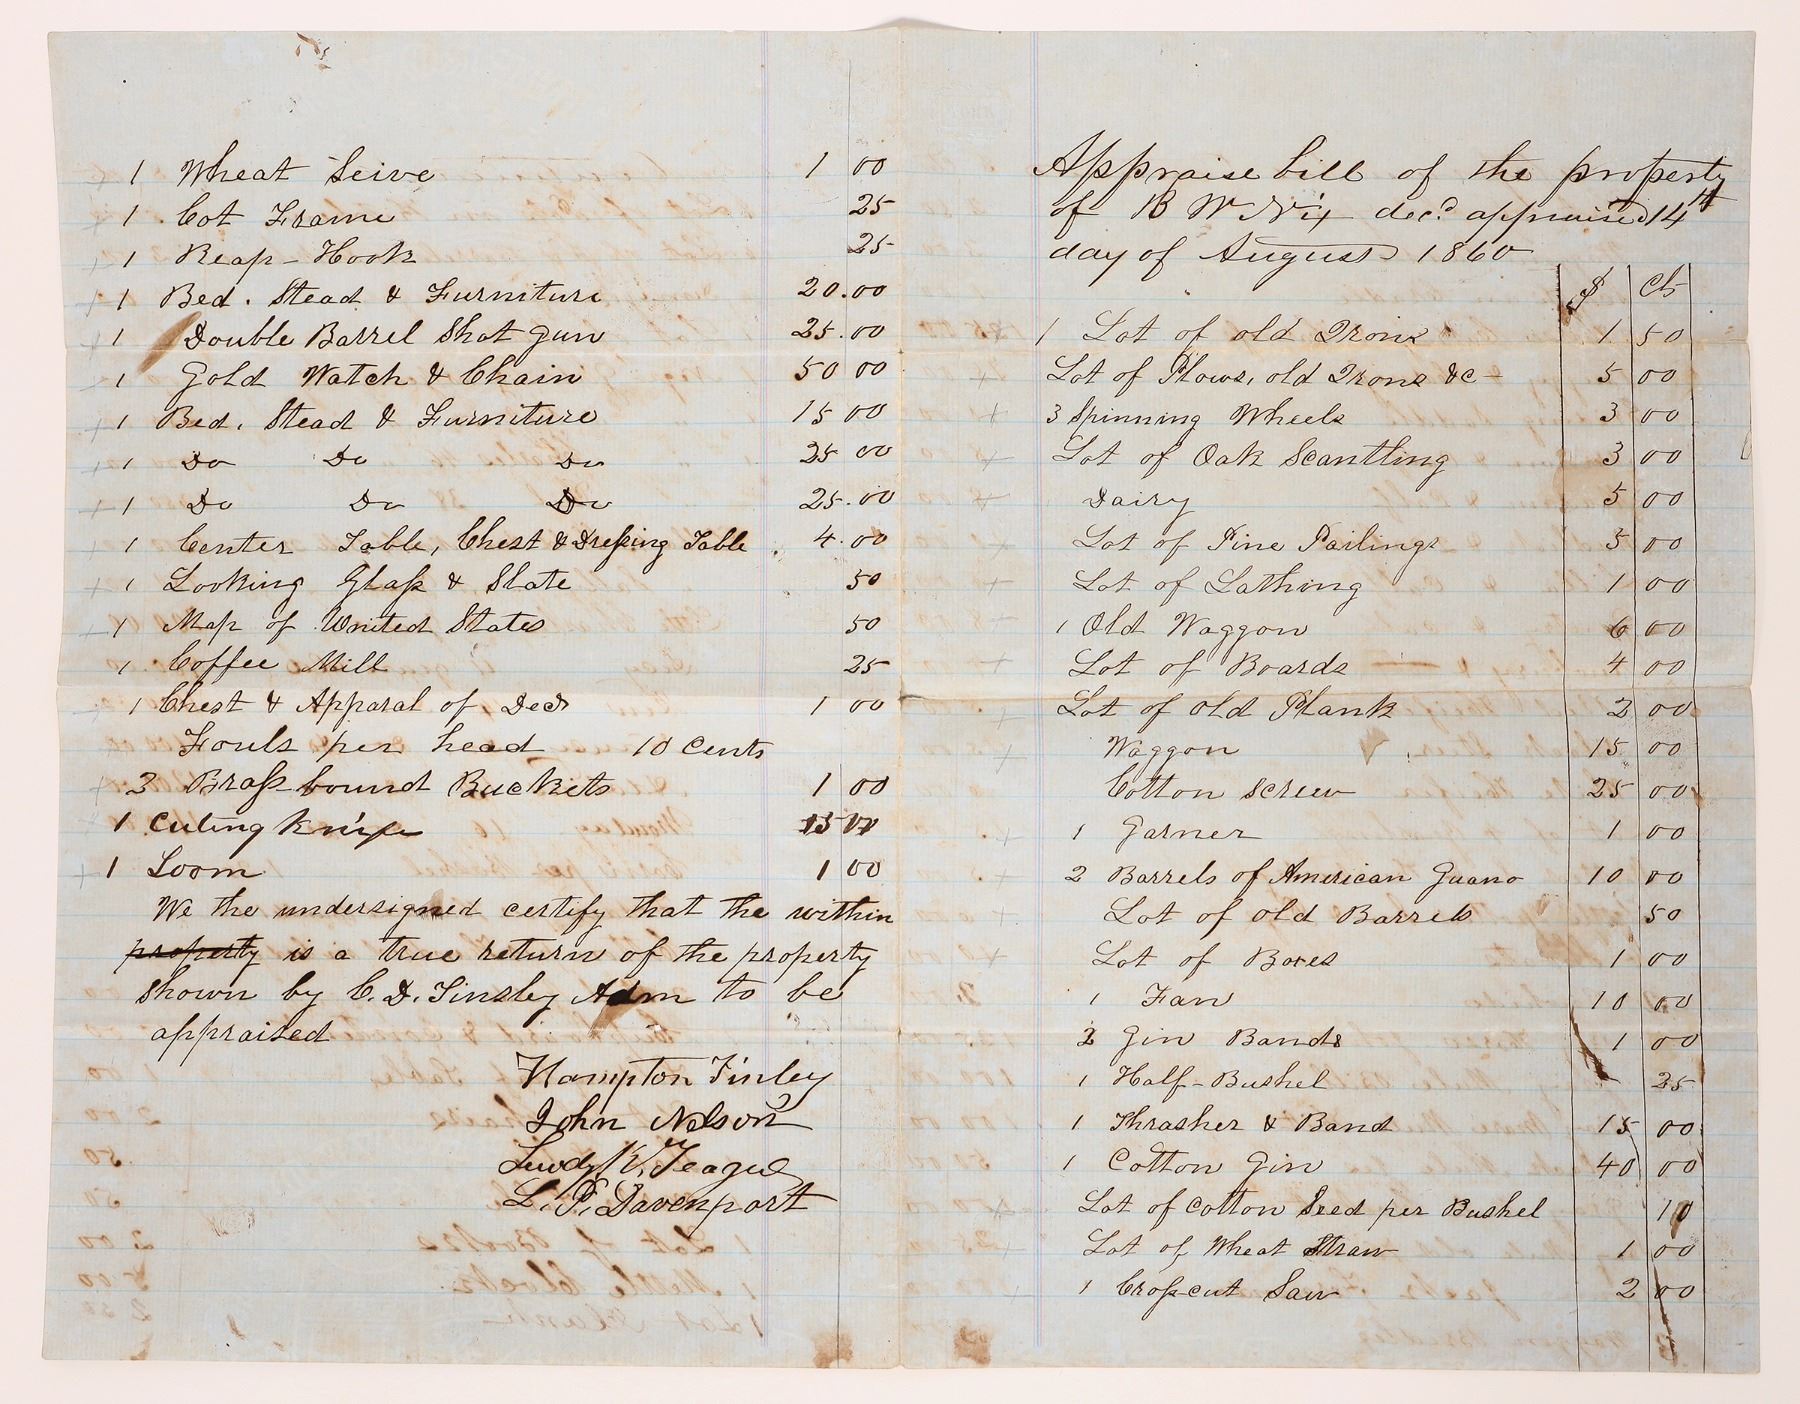 1 Wheat Seive 1 00
1 Cot Frame 25
1 Reap-Hook 25
1 Bed. Stead & Furniture 20.00
1 Double Barrel Shot Gun 25.00
1 Gold Watch & Chain 50 00
1 Bed. Stead & Furniture 15 00
1 Do Do Do 25 00
1 Do Do Do 25.00
1 Center Table, Chest & Dressing Table 4.00
1 Looking Glass & Slate 50
1 Map of United States 50
1 Coffee Mill 25
1 Chest & Apparal of Decd 1 00
Fouls per head 10 cents
3 Brass bound Buckets 1 00
1 Cuting Knife
1 Loom 1 00
We the undersigned certify that the within
property is a true return of the property
shown by C. D. Tinsley Adm to be
appraised
Hampton Finley
John Nelson
Ludy K. Teague
L. P. Davenport
Appraise bill of the property
of B W Nix decd appraised 14th
day of August 1860
$ Cts
1 Lot of old Irons 1 50
Lot of Plows, old Irons &c 5 00
3 Spinning Wheels 3 00
Lot of Oak Scantling 3 00
Dairy 5 00
Lot of Pine Pailings 5 00
Lot of Lathing 1 00
1 Old Waggon 6 00
Lot of Boards 4 00
Lot of old Plank 2 00
Waggon 15 00
Cotton Screw 25 00
1 Garner 1 00
2 Barrels of American Guano 10 00
Lot of old Barrels 50
Lot of Boxes 1 00
1 Fan 10 00
2 Gin Bands 1 00
1 Half-Bushel 25
1 Thrasher & Band 15 00
1 Cotton Gin 40 00
Lot of Cotton Seed per Bushel 10
Lot of Wheat Straw 1 00
1 Cross-cut Saw 2 00